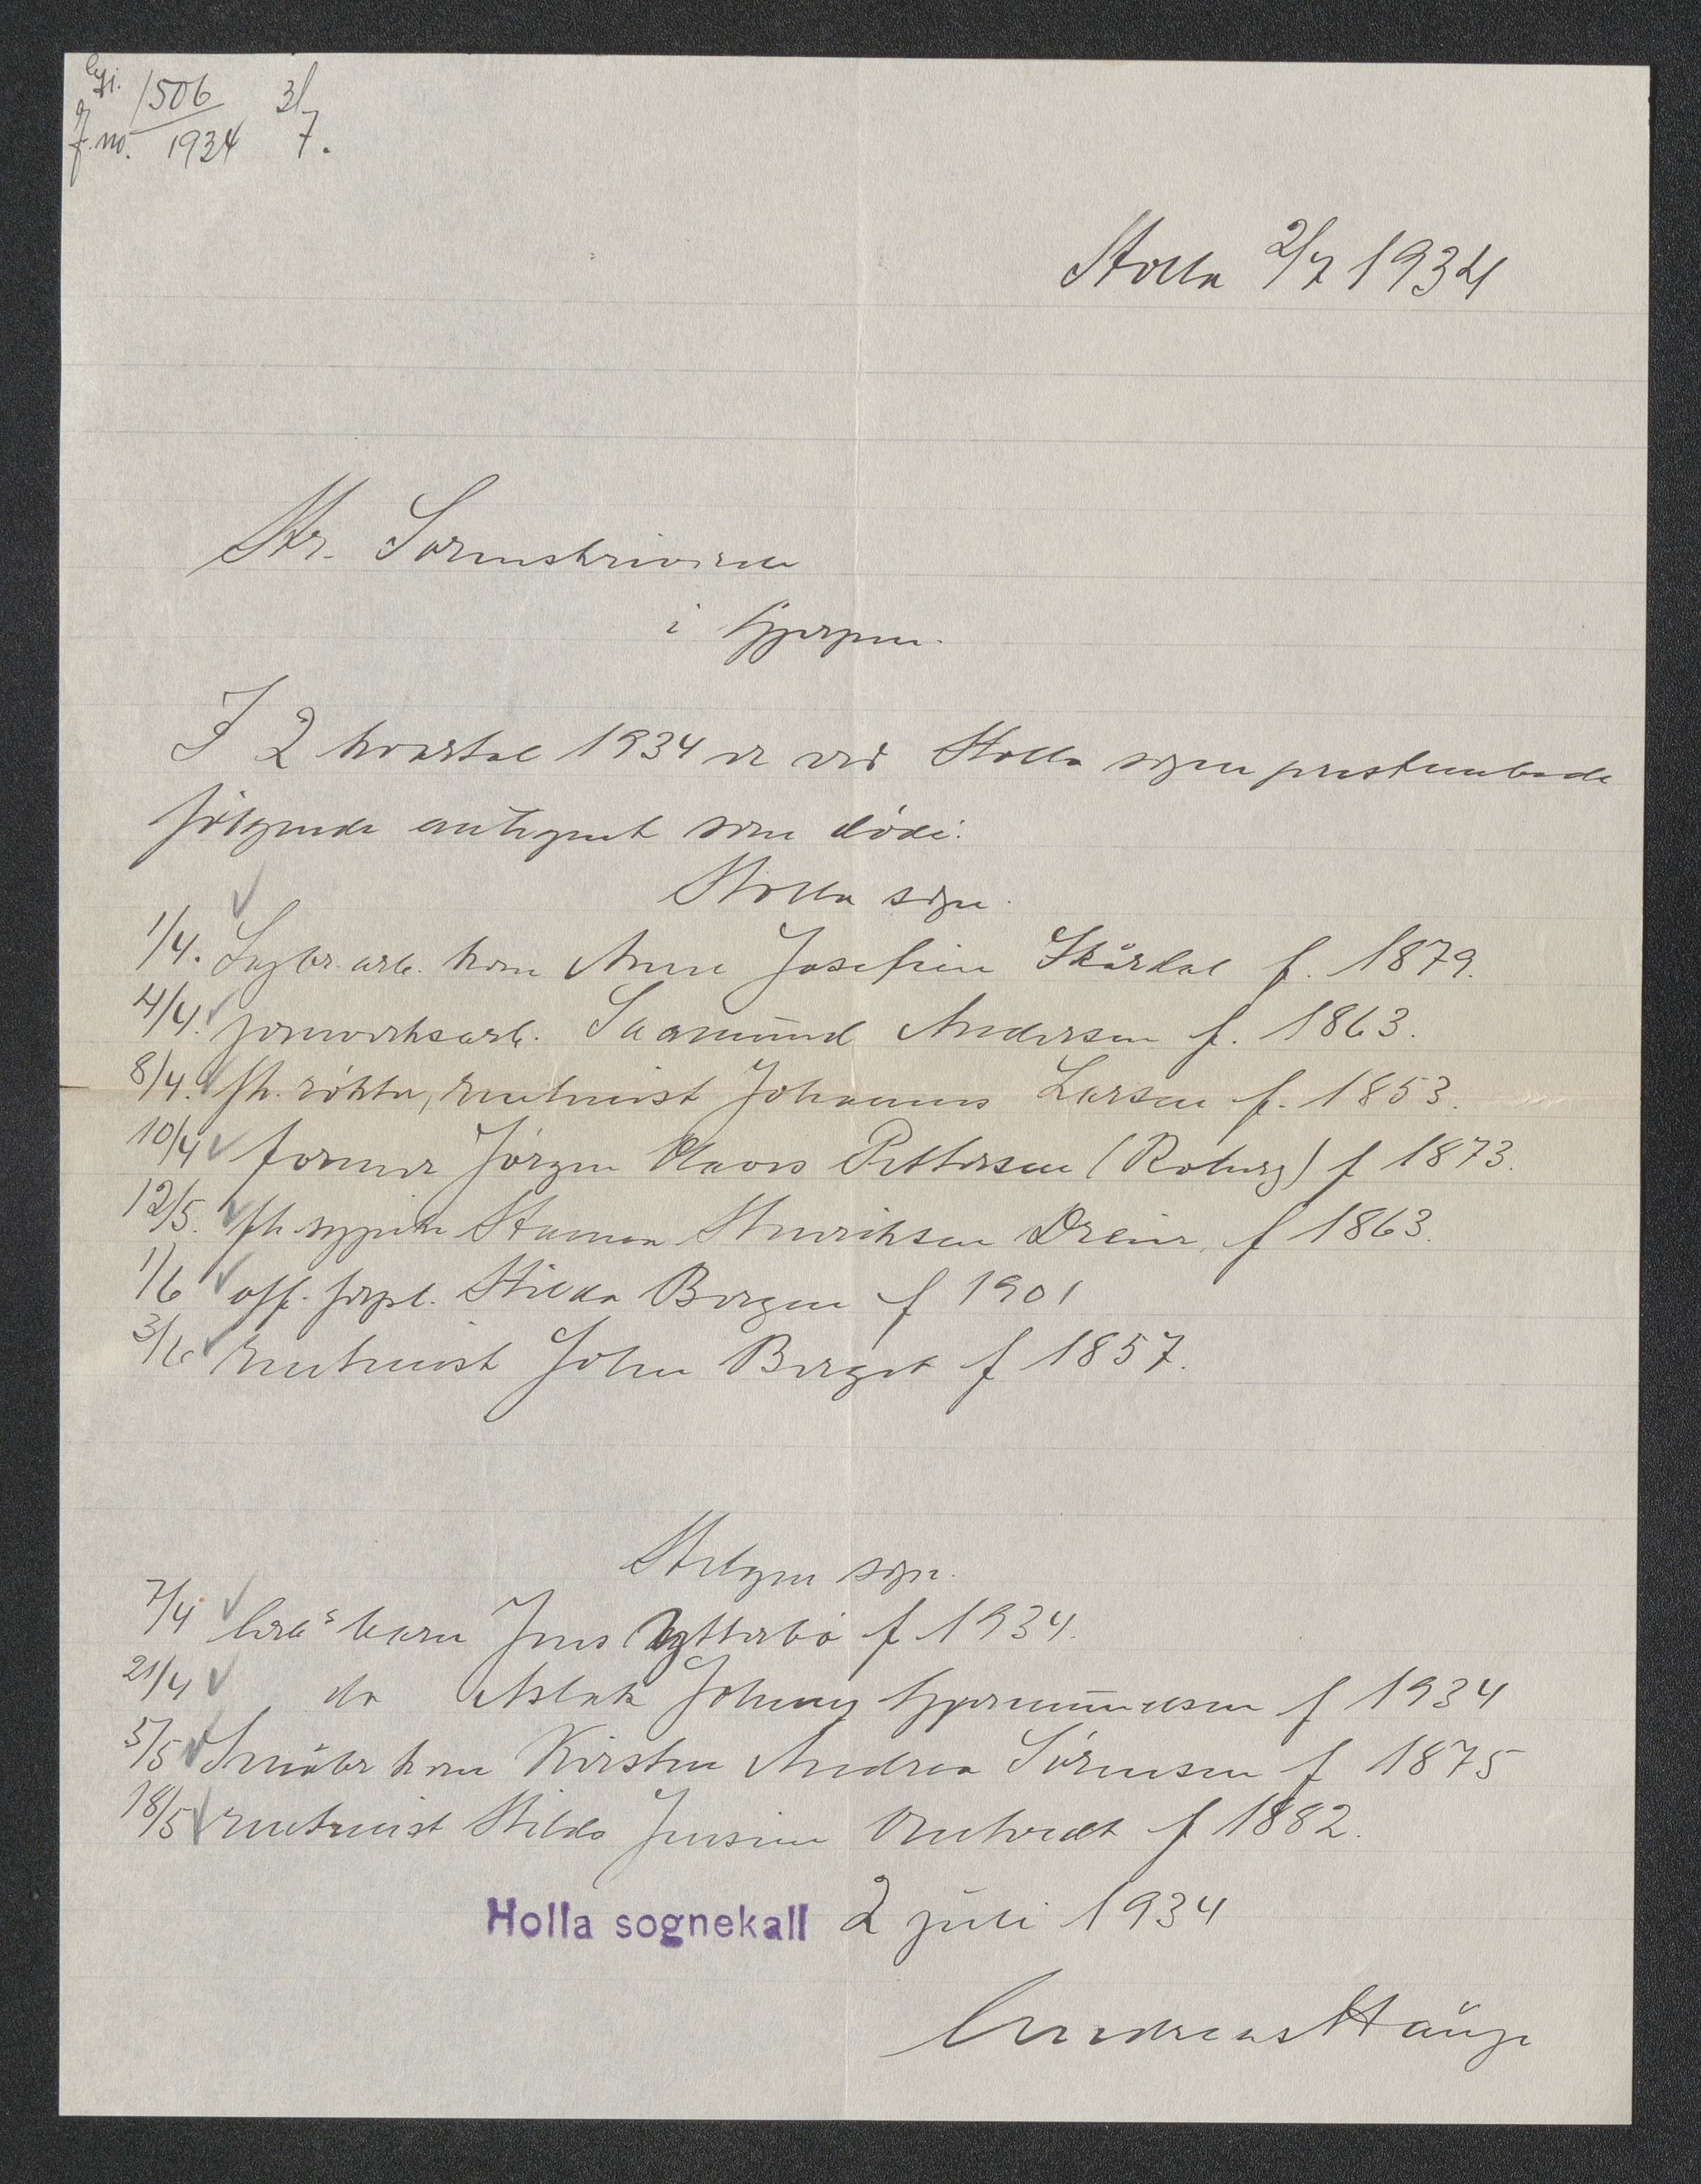 Gji.
J.no. 1506/1934 3/7.
Holla 2/7 1934
Hr. Sorenskriveren
i Gjerpen.
I 2 kvartal 1934 er ved Holla sogneprestembede
følgende antegnet som døde:
Holla sogn.
1/4. Sagbr.arb. kone Anne Josefine Skårdal f. 1879.
4/4. jernverksarb. Saamund Andersen f. 1863.
8/4. fh. røkter, rentenist Johannes Larsen f. 1853.
10/4 former Jörgen Klaves Pettersen (Roberg) f 1873.
12/5. fh sypike Hanna Henriksen f 1863.
1/6 off. forpl. Hilda Borgen f 1901
3/6 rentenist John Berget f 1857.
Helgen sogn.
7/4 arbs barn Jens Ytterbø f 1934.
21/4 do Aslak Johnny Gjermundsen f 1934
5/5 Småbr kone Kirsten Andrea Sörensen f 1875
18/5 rentenist Hilda Jensine f 1882.
Holla sognekall 2 juli 1934
Andreas Hauge